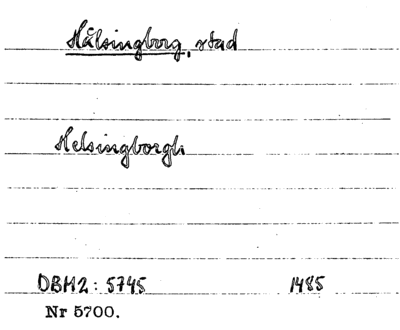 Hälsingborg, stad
Helsingborgh
DBM2: 5745 1485
Nr 5700.